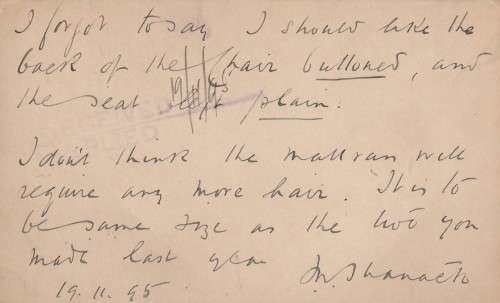 I forgot to say I should like the
back of the Chair buttoned, and
the seat left plain.
I don't think the mattrass will
require any more hair. It is to
be same size as the two you
made last year
19.11.95